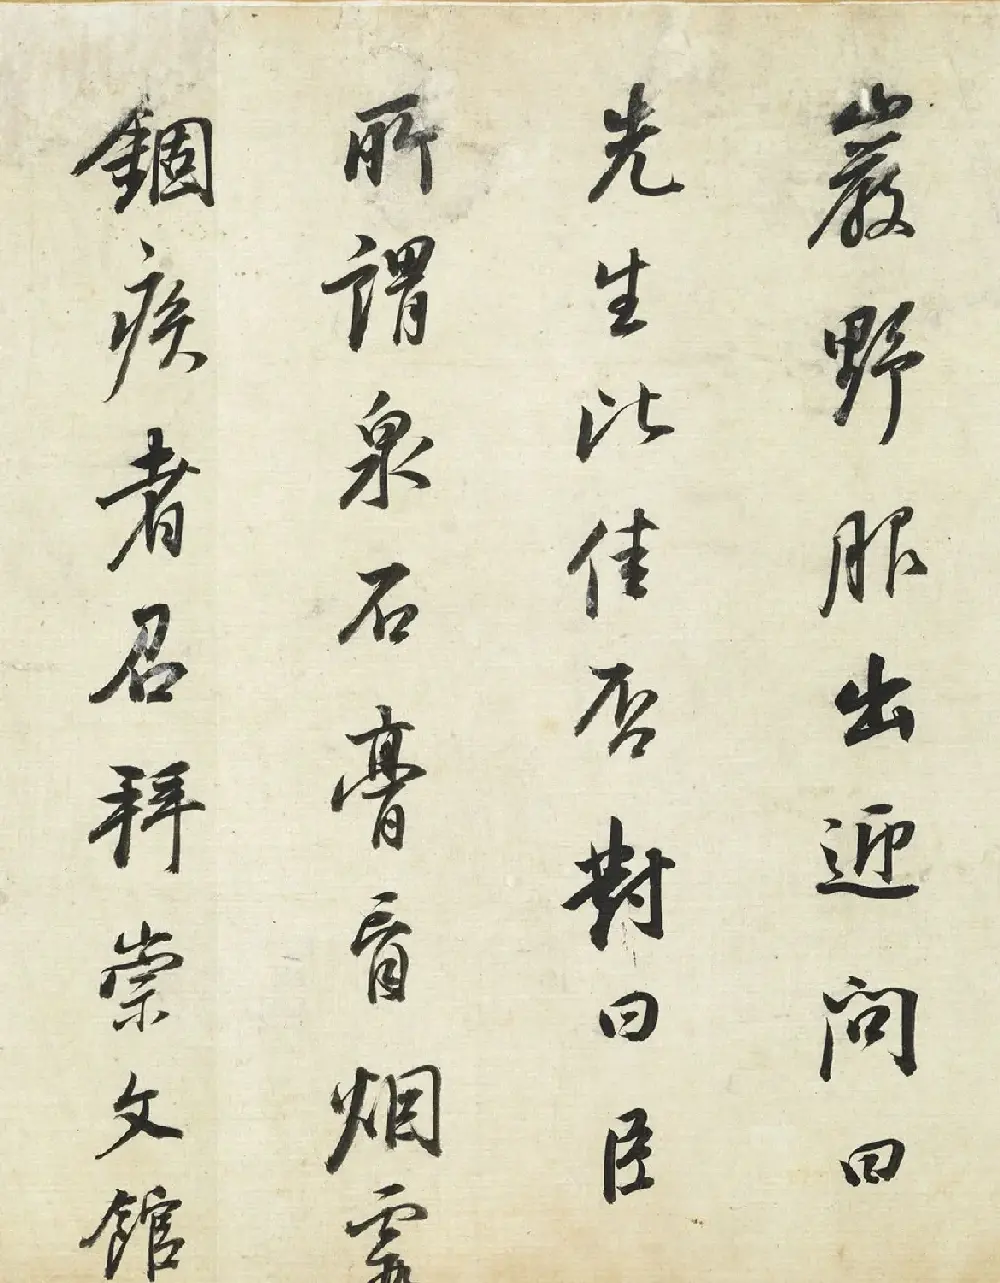 巖野服出迎問曰
先生比佳否對曰臣
所謂泉石膏肓烟霞
錮疾者召拜崇文館